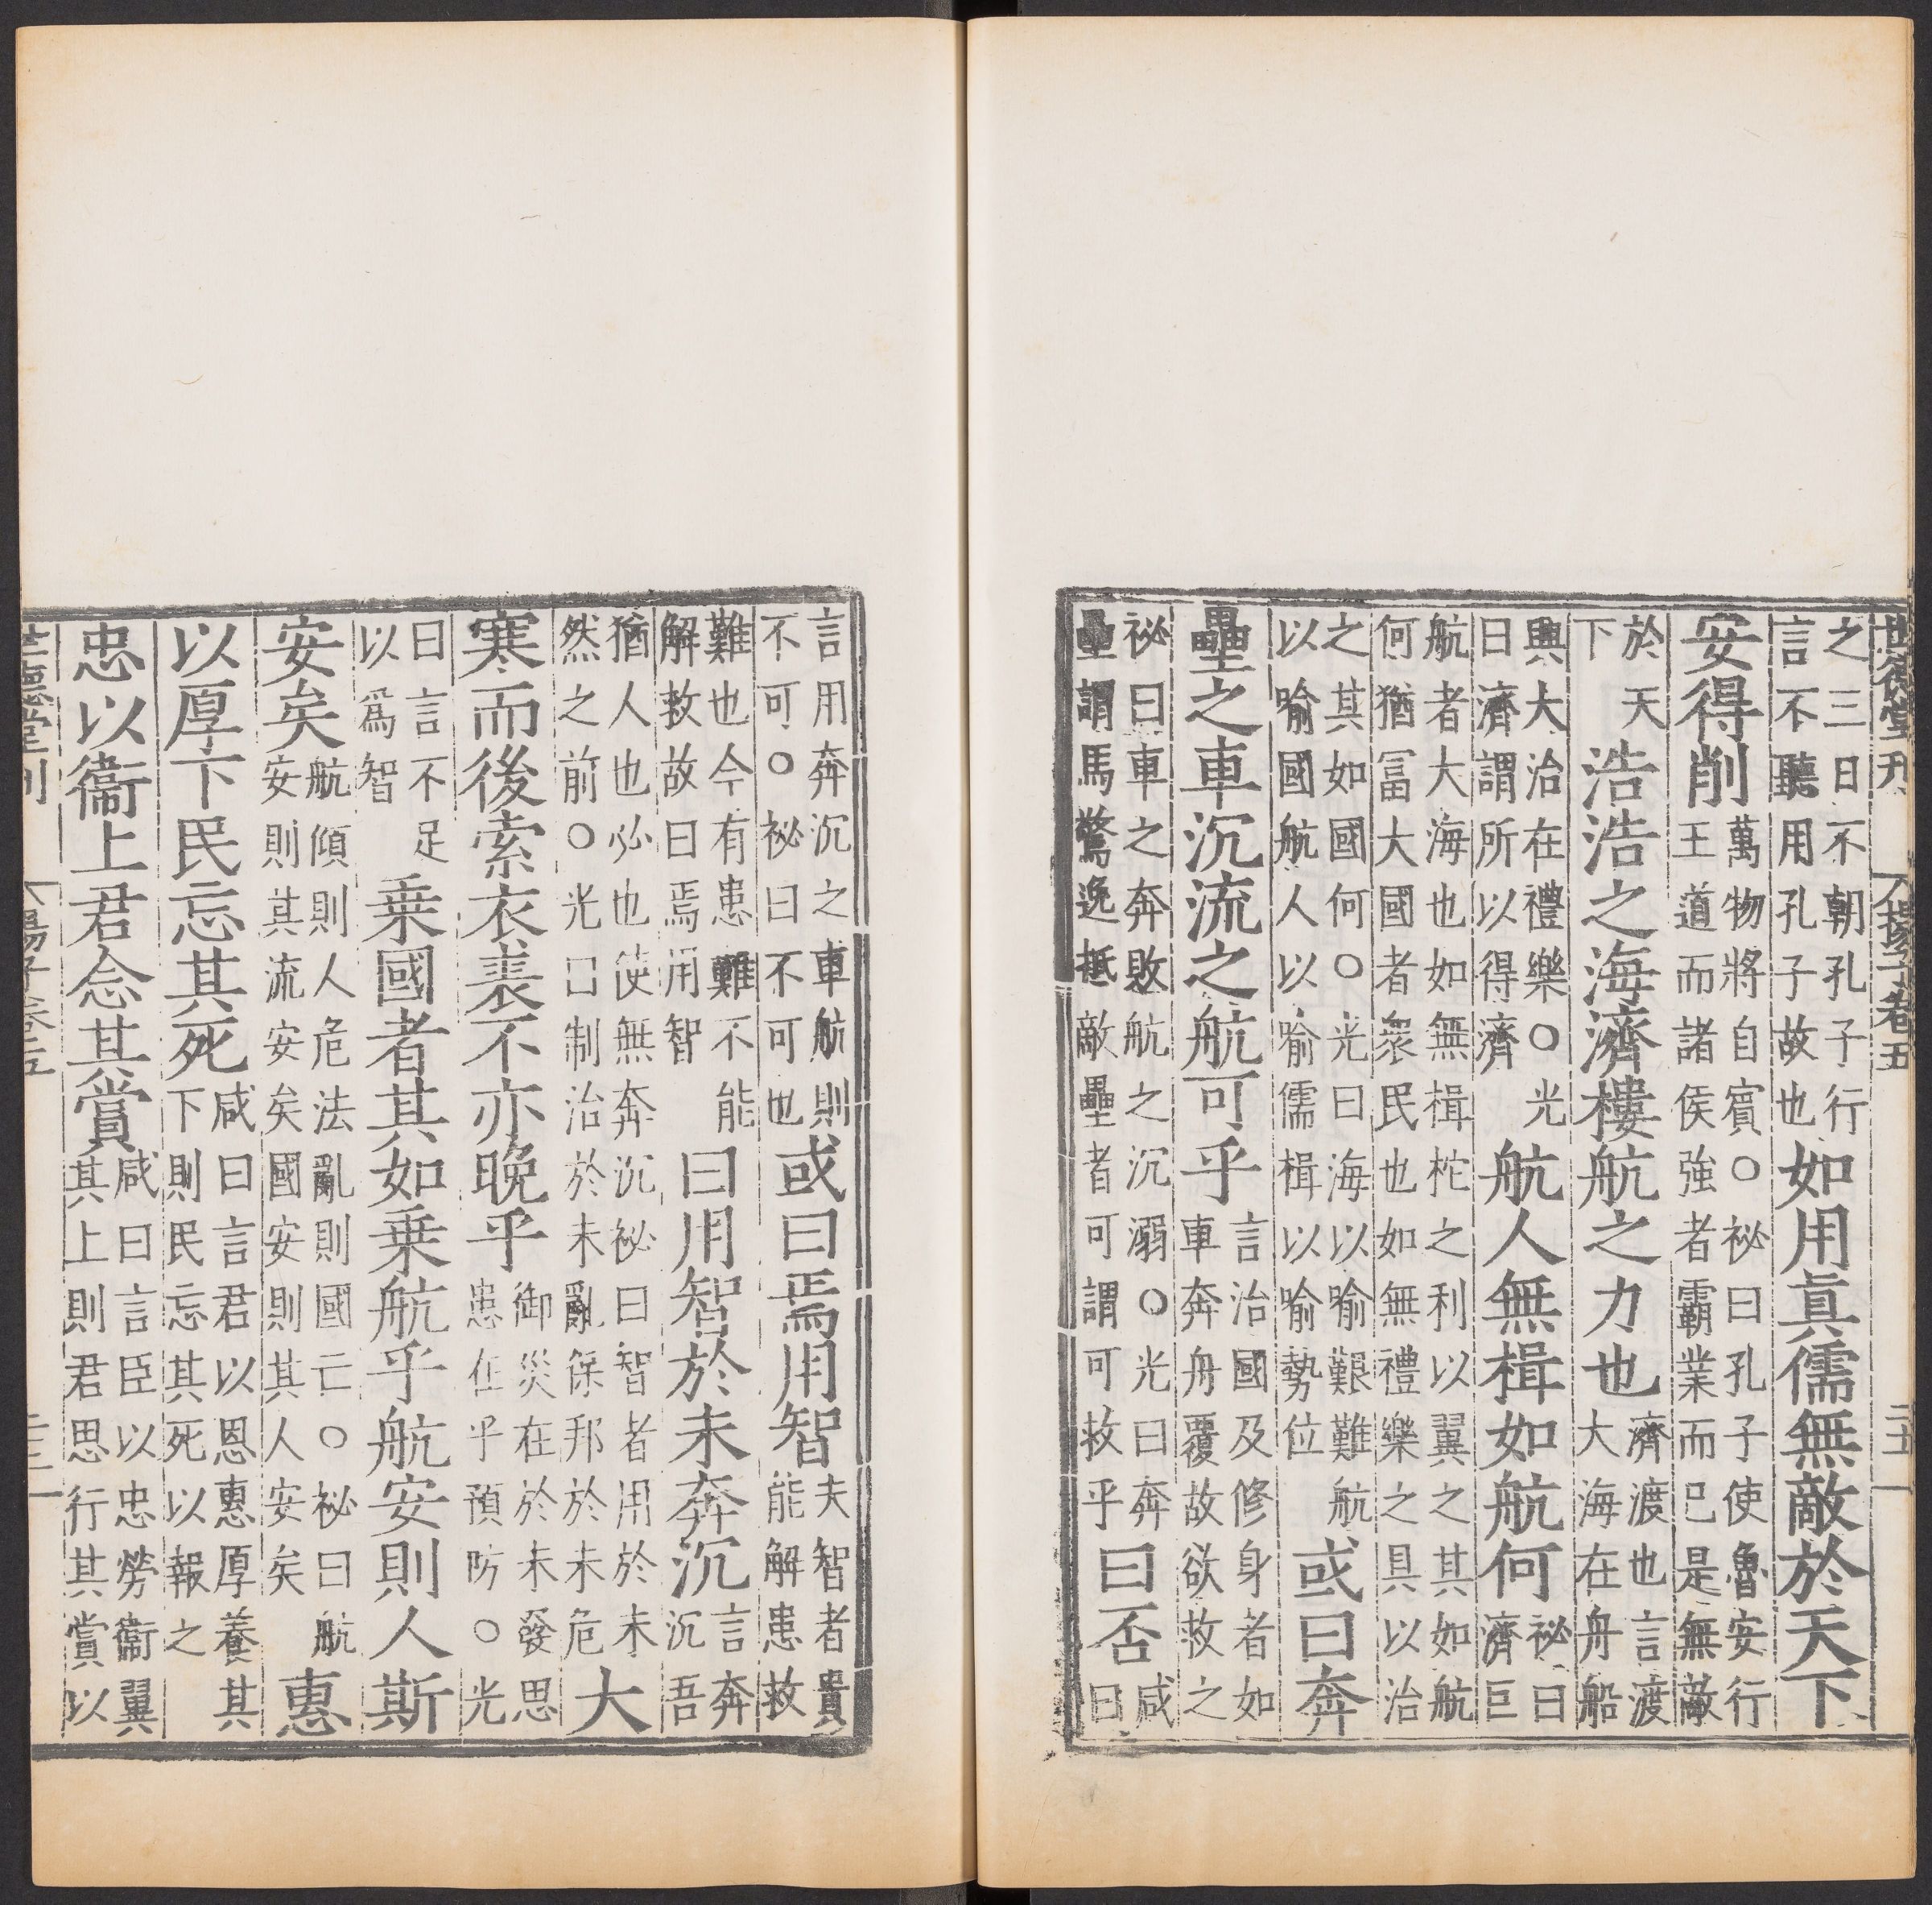 世德堂刊 揚子卷五
之三日不朝孔子行
言不聽用孔子故也
如用眞儒無敵於天下
安得削
萬物將自賓○祕曰孔子使魯安行
王道而諸侯強者霸業而已是無敵
於天
下
浩浩之海濟樓航之力也
濟渡也言渡
大海在舟船
興大治在禮樂○光
曰濟謂所以得濟
航人無楫如航何
祕曰
濟巨
航者大海也如無楫柁之利以翼之其如航
何猶冨大國者衆民也如無禮樂之具以治
之其如國何○光曰海以喻艱難航
以喻國航人以喻儒楫以喻勢位
或曰奔
壘之車沉流之航可乎
言治國及修身者如
車奔舟覆故欲救之
祕曰車之奔敗航之沉溺○光曰奔
壘謂馬驚逸抵敵壘者可謂可救乎
曰否
咸
曰
言用奔沉之車航則
不可○祕曰不可也
或曰焉用智
夫智者貴
能解患救
難也今有患難不能
解救故曰焉用智
曰用智於未奔沉
言奔
沉吾
猶人也必也使無奔沉祕曰智者用於未
然之前○光曰制治於未亂保邦於未危
大
寒而後索衣裘不亦晚乎
御災在於未發思
患在乎預防○光
曰言不足
以爲智
乗國者其如乗航乎航安則人斯
安矣
航傾則人危法亂則國亡○祕曰航
安則其流安矣國安則其人安矣
惠
以厚下民忘其死
咸曰言君以恩惠厚養其
下則民忘其死以報之
忠以衞上君念其賞
咸曰言臣以忠勞衞翼
其上則君思行其賞以
世德堂刊 揚子卷五